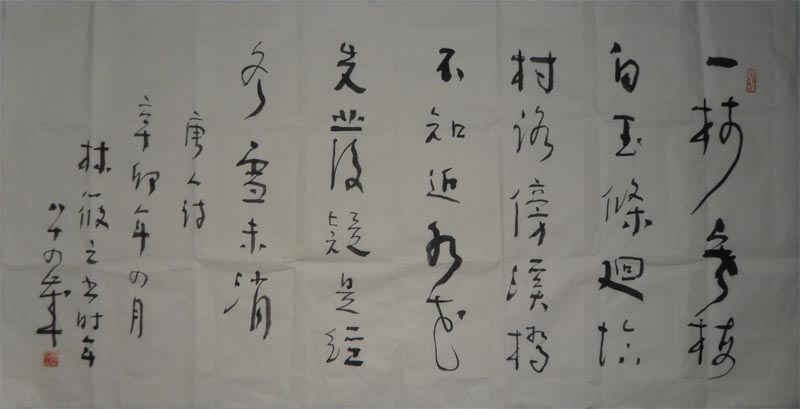 一树寒梅
白玉條迴临
村路傍溪橋
不知近水花
先發疑是經
冬雪未消
唐人诗
辛卯年四月
林筱之书时年
八十四歲